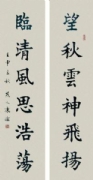 望秋雲神飛揚
臨清風思浩蕩